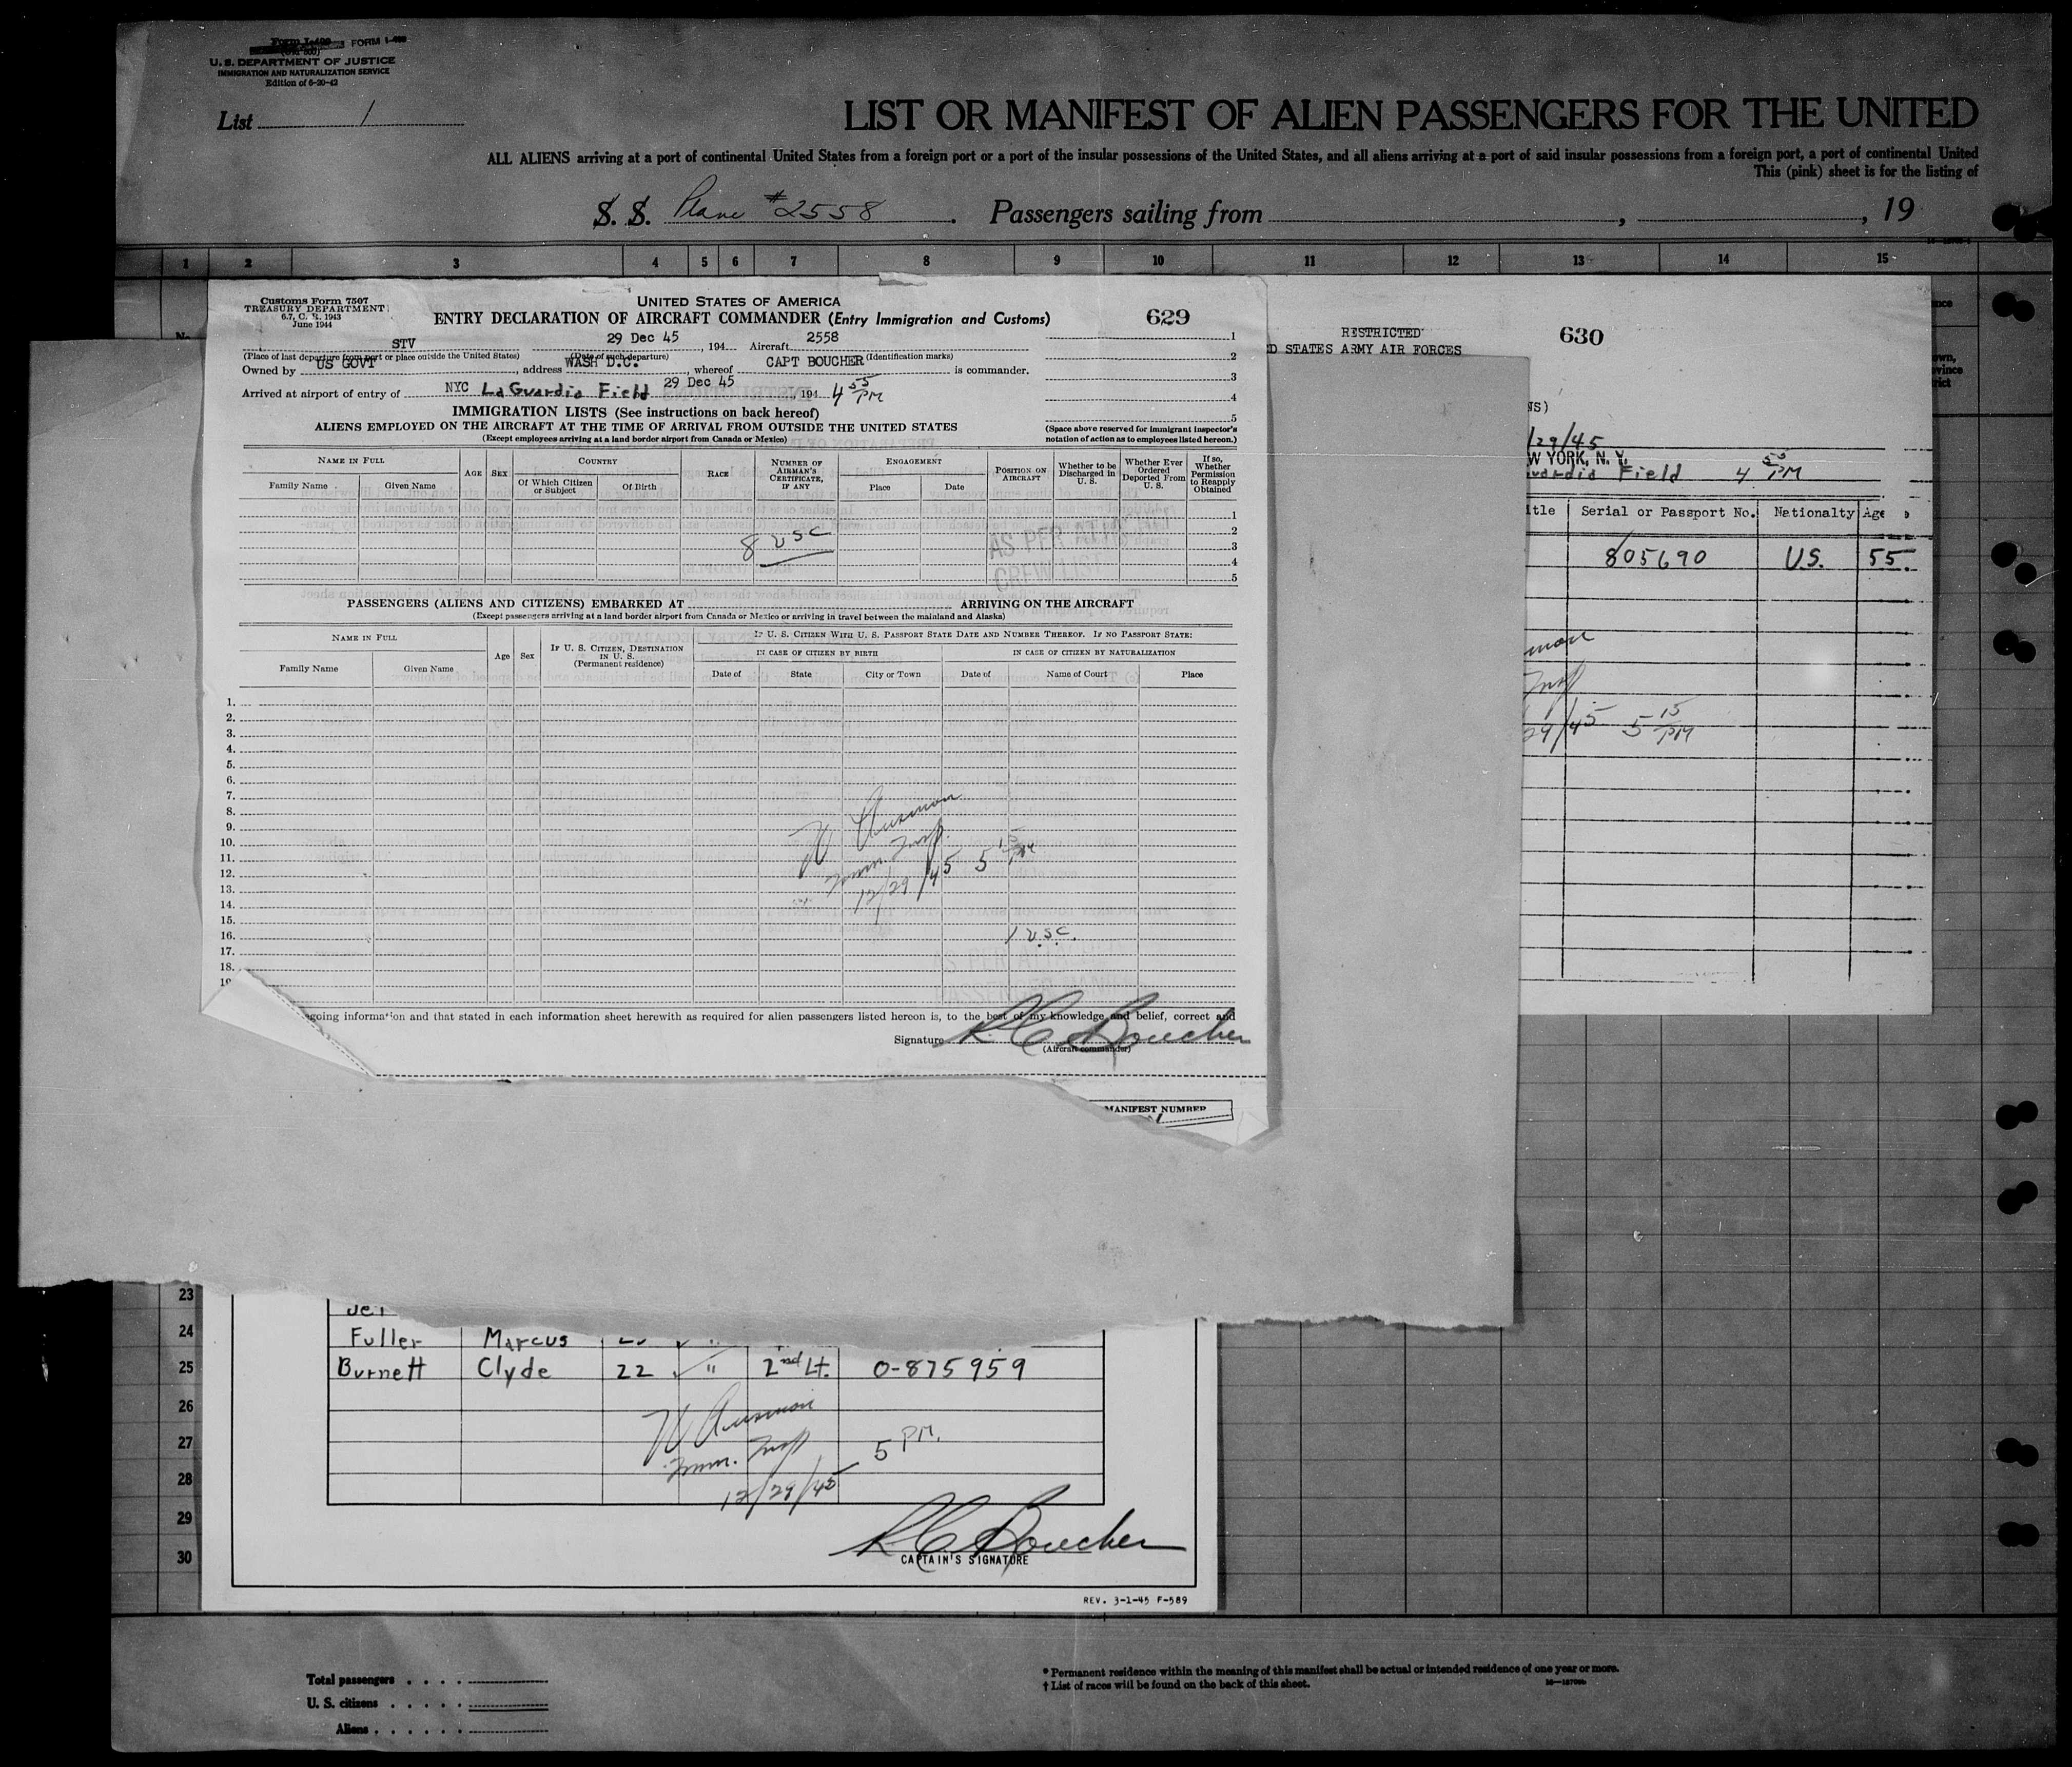 Form I-400 FORM I-400
U. S. DEPARTMENT OF JUSTICE
IMMIGRATION AND NATURALIZATION SERVICE
Edition of 6-20-42
List 1
LIST OR MANIFEST OF ALIEN PASSENGERS FOR THE UNITED
ALL ALIENS arriving at a port of continental United States from a foreign port or a port of the insular possessions of the United States, and all aliens arriving at a port of said insular possessions from a foreign port, a port of continental United
This (pink) sheet is for the listing of
S. S. Plane #2558. Passengers sailing from , , 19
1 2 3 4 5 6 7 8 9 10 11 12 13 14 15
Customs Form 7507
TREASURY DEPARTMENT
6.7, C. R. 1943
June 1944
UNITED STATES OF AMERICA
ENTRY DECLARATION OF AIRCRAFT COMMANDER (Entry Immigration and Customs)
629
STV 29 Dec 45, 194 Aircraft 2558
(Place of last departure from port or place outside the United States) (Date of such departure) (Identification marks)
Owned by US GOVT, address WASH D.C., whereof CAPT BOUCHER is commander.
Arrived at airport of entry of NYC LaGuardia Field 29 Dec 45, 194 4 55 PM
1
2
3
4
5
IMMIGRATION LISTS (See instructions on back hereof)
ALIENS EMPLOYED ON THE AIRCRAFT AT THE TIME OF ARRIVAL FROM OUTSIDE THE UNITED STATES
(Except employees arriving at a land border airport from Canada or Mexico)
(Space above reserved for immigrant inspector's
notation of action as to employees listed hereon.)
NAME IN FULL AGE SEX COUNTRY RACE NUMBER OF AIRMAN'S CERTIFICATE, IF ANY ENGAGEMENT POSITION ON AIRCRAFT Whether to be Discharged in U. S. Whether Ever Ordered Deported From U. S. If so, Whether Permission to Reapply Obtained
Family Name Given Name Of Which Citizen or Subject Of Birth Place Date
1
2
3
4
5
8 USC
AS PER ATTACHED
CREW LIST
PASSENGERS (ALIENS AND CITIZENS) EMBARKED AT ARRIVING ON THE AIRCRAFT
(Except passengers arriving at a land border airport from Canada or Mexico or arriving in travel between the mainland and Alaska)
NAME IN FULL Age Sex IF U. S. CITIZEN, DESTINATION IN U. S. (Permanent residence) IF U. S. CITIZEN WITH U. S. PASSPORT STATE DATE AND NUMBER THEREOF. IF NO PASSPORT STATE:
IN CASE OF CITIZEN BY BIRTH IN CASE OF CITIZEN BY NATURALIZATION
Family Name Given Name Date of State City or Town Date of Name of Court Place
1.
2.
3.
4.
5.
6.
7.
8.
9.
10.
11.
12.
13.
14.
15.
16.
17.
18.
19
Imm. Insp.
12/29/45 5 15 PM
1 U.S.C.
AS PER ATTACHED
PASSENGER MANIFEST
going information and that stated in each information sheet herewith as required for alien passengers listed hereon is, to the best of my knowledge and belief, correct and
Signature R C Boucher
(Aircraft commander)
MANIFEST NUMBER
RESTRICTED
630
D STATES ARMY AIR FORCES
NS)
/29/45
W YORK, N. Y.
uardia Field 4 55 PM
itle Serial or Passport No. Nationalty Age
805690 U.S. 55.
Insp
29/45 5 15 PM
23
24 Fuller Marcus
25 Burnett Clyde 22 " 2nd Lt. O-875959
26
27
28
29
30
Imm. Insp 5 PM.
12/29/45
R C Boucher
CAPTAIN'S SIGNATURE
REV. 3-1-45 F-589
Total passengers
U. S. citizens
Aliens
* Permanent residence within the meaning of this manifest shall be actual or intended residence of one year or more.
† List of races will be found on the back of this sheet.